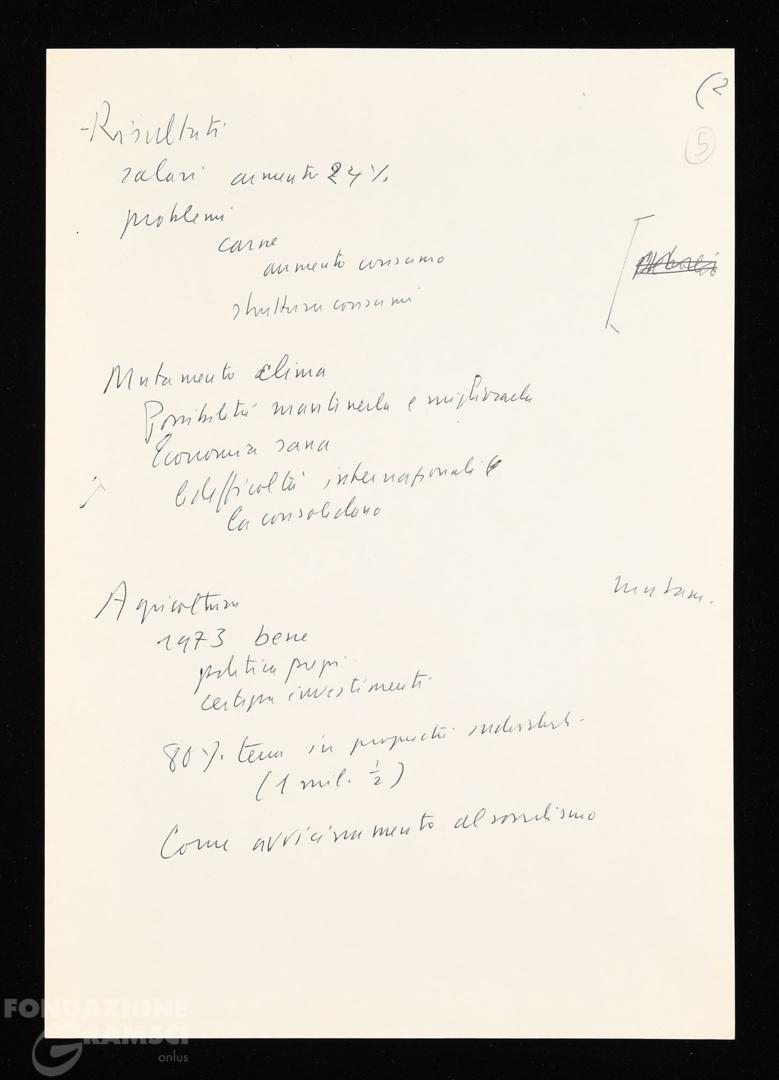 (2
5
- Risultati
salari aumento 24%
problemi
carne
aumento consumo
struttura consumi
Mutamento clima
Possibilità mantenerla e migliorarla
Economia sana
le difficoltà internazionali
la consolidano
Agricoltura
mutam.
1973 bene
politica prezzi
certezza investimenti
80% terra in proprietà individuale
(1 mil. 1/2)
Come avvicinamento al socialismo
FONDAZIONE
GRAMSCI
onlus